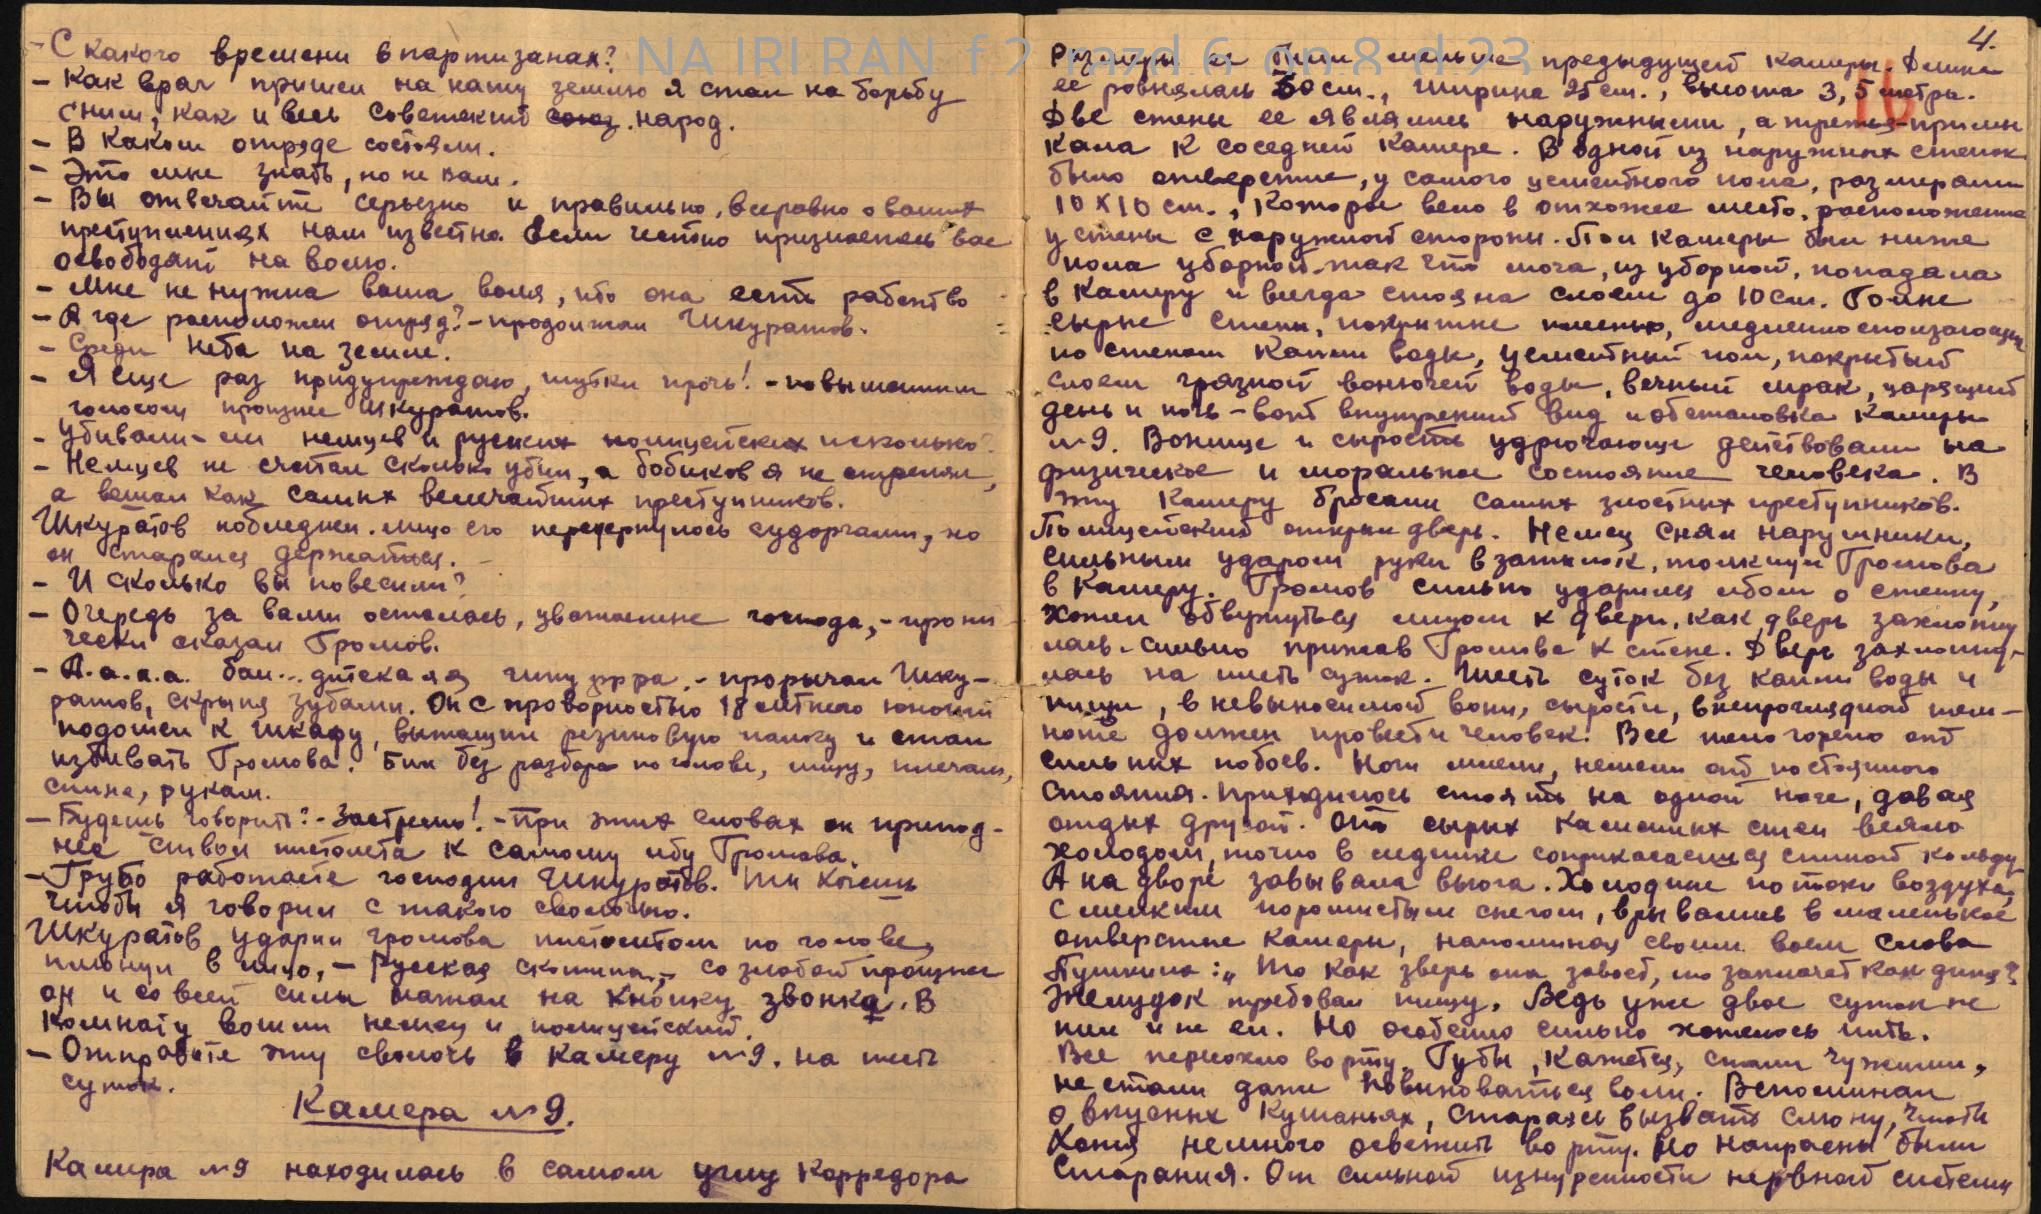 - С какого времени в партизанах?
- Как враг пришел на нашу землю я стал на борьбу
с ним, как и весь советский союз народ.
- В каком отряде состояли.
- Это мне знать, но не вам.
- Вы отвечайте серьезно и правильно, всеравно о ваших
преступлениях нам известно. Если честно признаетесь вас
освободят на волю.
- Мне не нужна ваша воля, ибо она есть рабство
- А где расположен отряд? - продолжал Шкуратов.
- Среди неба на земле.
- Я еще раз придупреждаю, шутки прочь! - повышенным
голосом произнес Шкуратов.
- Убивали-ли немцев и русских полицейских и сколько?
- Немцев не считал сколько убил, а бобиков я не стрелял,
а вешал как самых величайших преступников.
Шкуратов побледнел. лицо его передернулось судоргами, но
он старался держаться.
- И сколько вы повесили?
- Очередь за вами осталась, уважаемые господа, - ирони
чески сказал Громов.
- А.а.а.а. бан... дитская шкура, - прорычал Шку-
ратов, скрыпя зубами. Он с проворностью 18 летнего юноши
подошел к шкафу, вытащил резиновую палку и стал
избивать Громова. Бил без разбора по голове, лицу, плечам,
спине, рукам.
- Будешь говорить? - Застрелю! - При этих словах он припод-
нес ствол пистолета к самому лбу Громова.
- Грубо работаете господин Шкуратов. Ты хочешь
чтобы я говорил с такою сволочью.
Шкуратов ударил громова пистолетом по голове,
плюнул в лицо, - Русская скотина, - со злобой произнес
он и со всей силы нажал на кнопку звонка. В
комнату вошли немец и полицейский.
- Отправьте эту сволочь в камеру №9. на шесть
суток.
Камера №9.
Камера №9 находилась в самом углу корредора
4.
Размеры ее были меньше предыдущей камеры. Длина
ее ровнялась 50 см., ширина 25 см., высота 3,5 метра.
Две стены ее являлись наружными, а третья-примы
кала к соседней камере. В одной из наружных стенок
было отверстие, у самого цементного пола, размерами
10 х 10 см., которое вело в отхожее место, расположенное
у стены с наружной стороны. Пол камеры был ниже
пола уборной-так что моча, из уборной, попадала
в камеру и всегда стояла слоем до 10 см. Голые
сырые стены, покрытые плесенью, медленно сползающие
по стенам капли воды, цементный пол, покрытый
слоем грязной вонючей воды, вечный мрак, царящий
день и ночь - вот внутренний вид и обстановка камеры
№9. Вонище и сырость удрючающе действовали на
физическое и моральное состояние человека. В
эту камеру бросали самых злостных преступников.
Полицейский открыл дверь. Немец снял наручники,
сильным ударом руки в затылок, толкнул Громова
в камеру. Громов сильно ударился лбом о стенку,
хотел обвернуться лицом к двери, как дверь захлопну
лась. сильно прижав Громова к стене. Дверь захлопну-
лась на шесть суток. Шесть суток без капли воды и
пищи, в невыносимой вони, сырости, в непроглядной тем-
ноте должен провести человек. Все тело горело от
сильных побоев. Ноги млели, немели от постоянного
стояния. Приходилось стоять на одной ноге, давая
отдых другой. От сырых каменных стен веяло
холодом, точно в леднике соприкасаешься спиной к льду.
А на дворе завывала вьюга. Холодные потоки воздуха,
с мелким порошистым снегом, врывались в маленькое
отверстие камеры, напоминая своим воем слова
Пушкина: „То как зверь она завоет, то заплачет как дитя?
Желудок требовал пищу. Ведь уже двое суток не
пил и не ел. Но особенно сильно хотелось пить.
Все пересохло во рту. Губы, кажется, стали чужими,
не стали даже повиноваться воли. Вспоминал
о вкусных кушаньях, стараясь вызвать слюну, чтобы
хотя немного освежить во рту. Но напрасны были
старания. От сильной изнуренности нервной системы